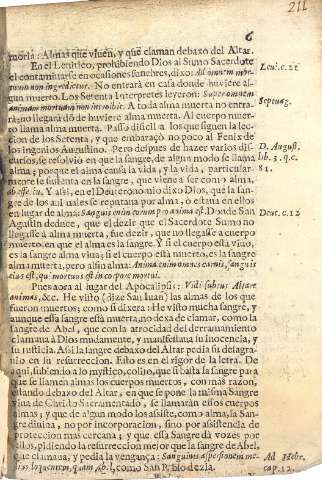 211
6
moria: Almas que viuen, y que claman debaxo del Altar.
En el Leuitico, prohibiendo Dios al Sumo Sacerdote
el contaminarse en ocasiones funebres, dixo: Ad omnem mor-
tuum non ingredietur. No entrará en casa donde huviere al-
gun muerto. Los Setenta Interpretes leyeron: Super omnem
animam mortuam non introibit. A toda alma muerta no entra-
rá; no llegará dõ de huviere alma muerta. Al cuerpo muer-
to llama alma muerta. Passo dificil a los que siguen la lec-
cion de los Setenta, y que embaraçò no poco al Fenix de
los ingenios Augustino. Pero despues de hazer varios dis-
cursos, se resolviò en que la sangre, de algun modo se llama
alma; porque el alma causa la vida, y la vida, particular-
mente se sustenta en la sangre, que viene a ser como alma.
Y assi, en el Deuteronomio dixo Dios, que la san-
gre de los animales se reputana por alma, ò estaua en ellos
en lugar de alma: Sanguis enim eorum pro anima est. Donde San
Agustin dedece, que el dezir que el Sacerdote Sumo no
llegasse à alma muerta, fue dezir, que no llegasse a cuerpo
muerto, en que el alma es la sangre. Y si el cuerpo està viuo,
es la sangre alma viua; si el cuerpo està muerto, es la sangre
alma muerta; pero al fin alma: Anima enim omnis carnis, sanguis
eius est, qui mortuus est in corpore mortui.
Pues aora al lugar del Apocalipsi: Vidi subtus Altare
animas, &c. He visto (dize San Iuan) las almas de los que
fueron muertos; como si dixera: He visto mucha sangre, y
aunque essa sangre està muerta, no dexa de clamar, como la
sangre de Abel, que con la atrocidad del derramamiento
clamaua à Dios mudamente, y manifestaua su inocencia, y
su justicia. Assi la sangre debaxo del Altar pedia su desagra-
uio en su resurreccion. Esto es en el rigor de la letra. De
aqui, subiendo a lo mystico, colijo, que si basta la sangre para
que se llamen almas los cuerpos muertos, con mas razon,
estando debaxo del Altar, en que se pone la misma Sangre
viua de Christo Sacramentado, se llamarán essos cuerpos
almas; y que de algun modo los assiste, como alma, la San-
gre diuina, no por incorporacion, sino por assistencia de
proteccion mas cercana; y que essa Sangre dà vozes por
ellos, pidiendo la resurreccion mejor que la sangre de Abel,
que clamaua, y pedia la vengança: Sanguinis aspersionem me-
lius loquentem, quam Abel, como San Pablo dezia.
Leui. c. 21
Septuag.
D. August.
lib. 3. q. c.
81.
Deut. c. 12
Ad Hebr.
cap. 12.